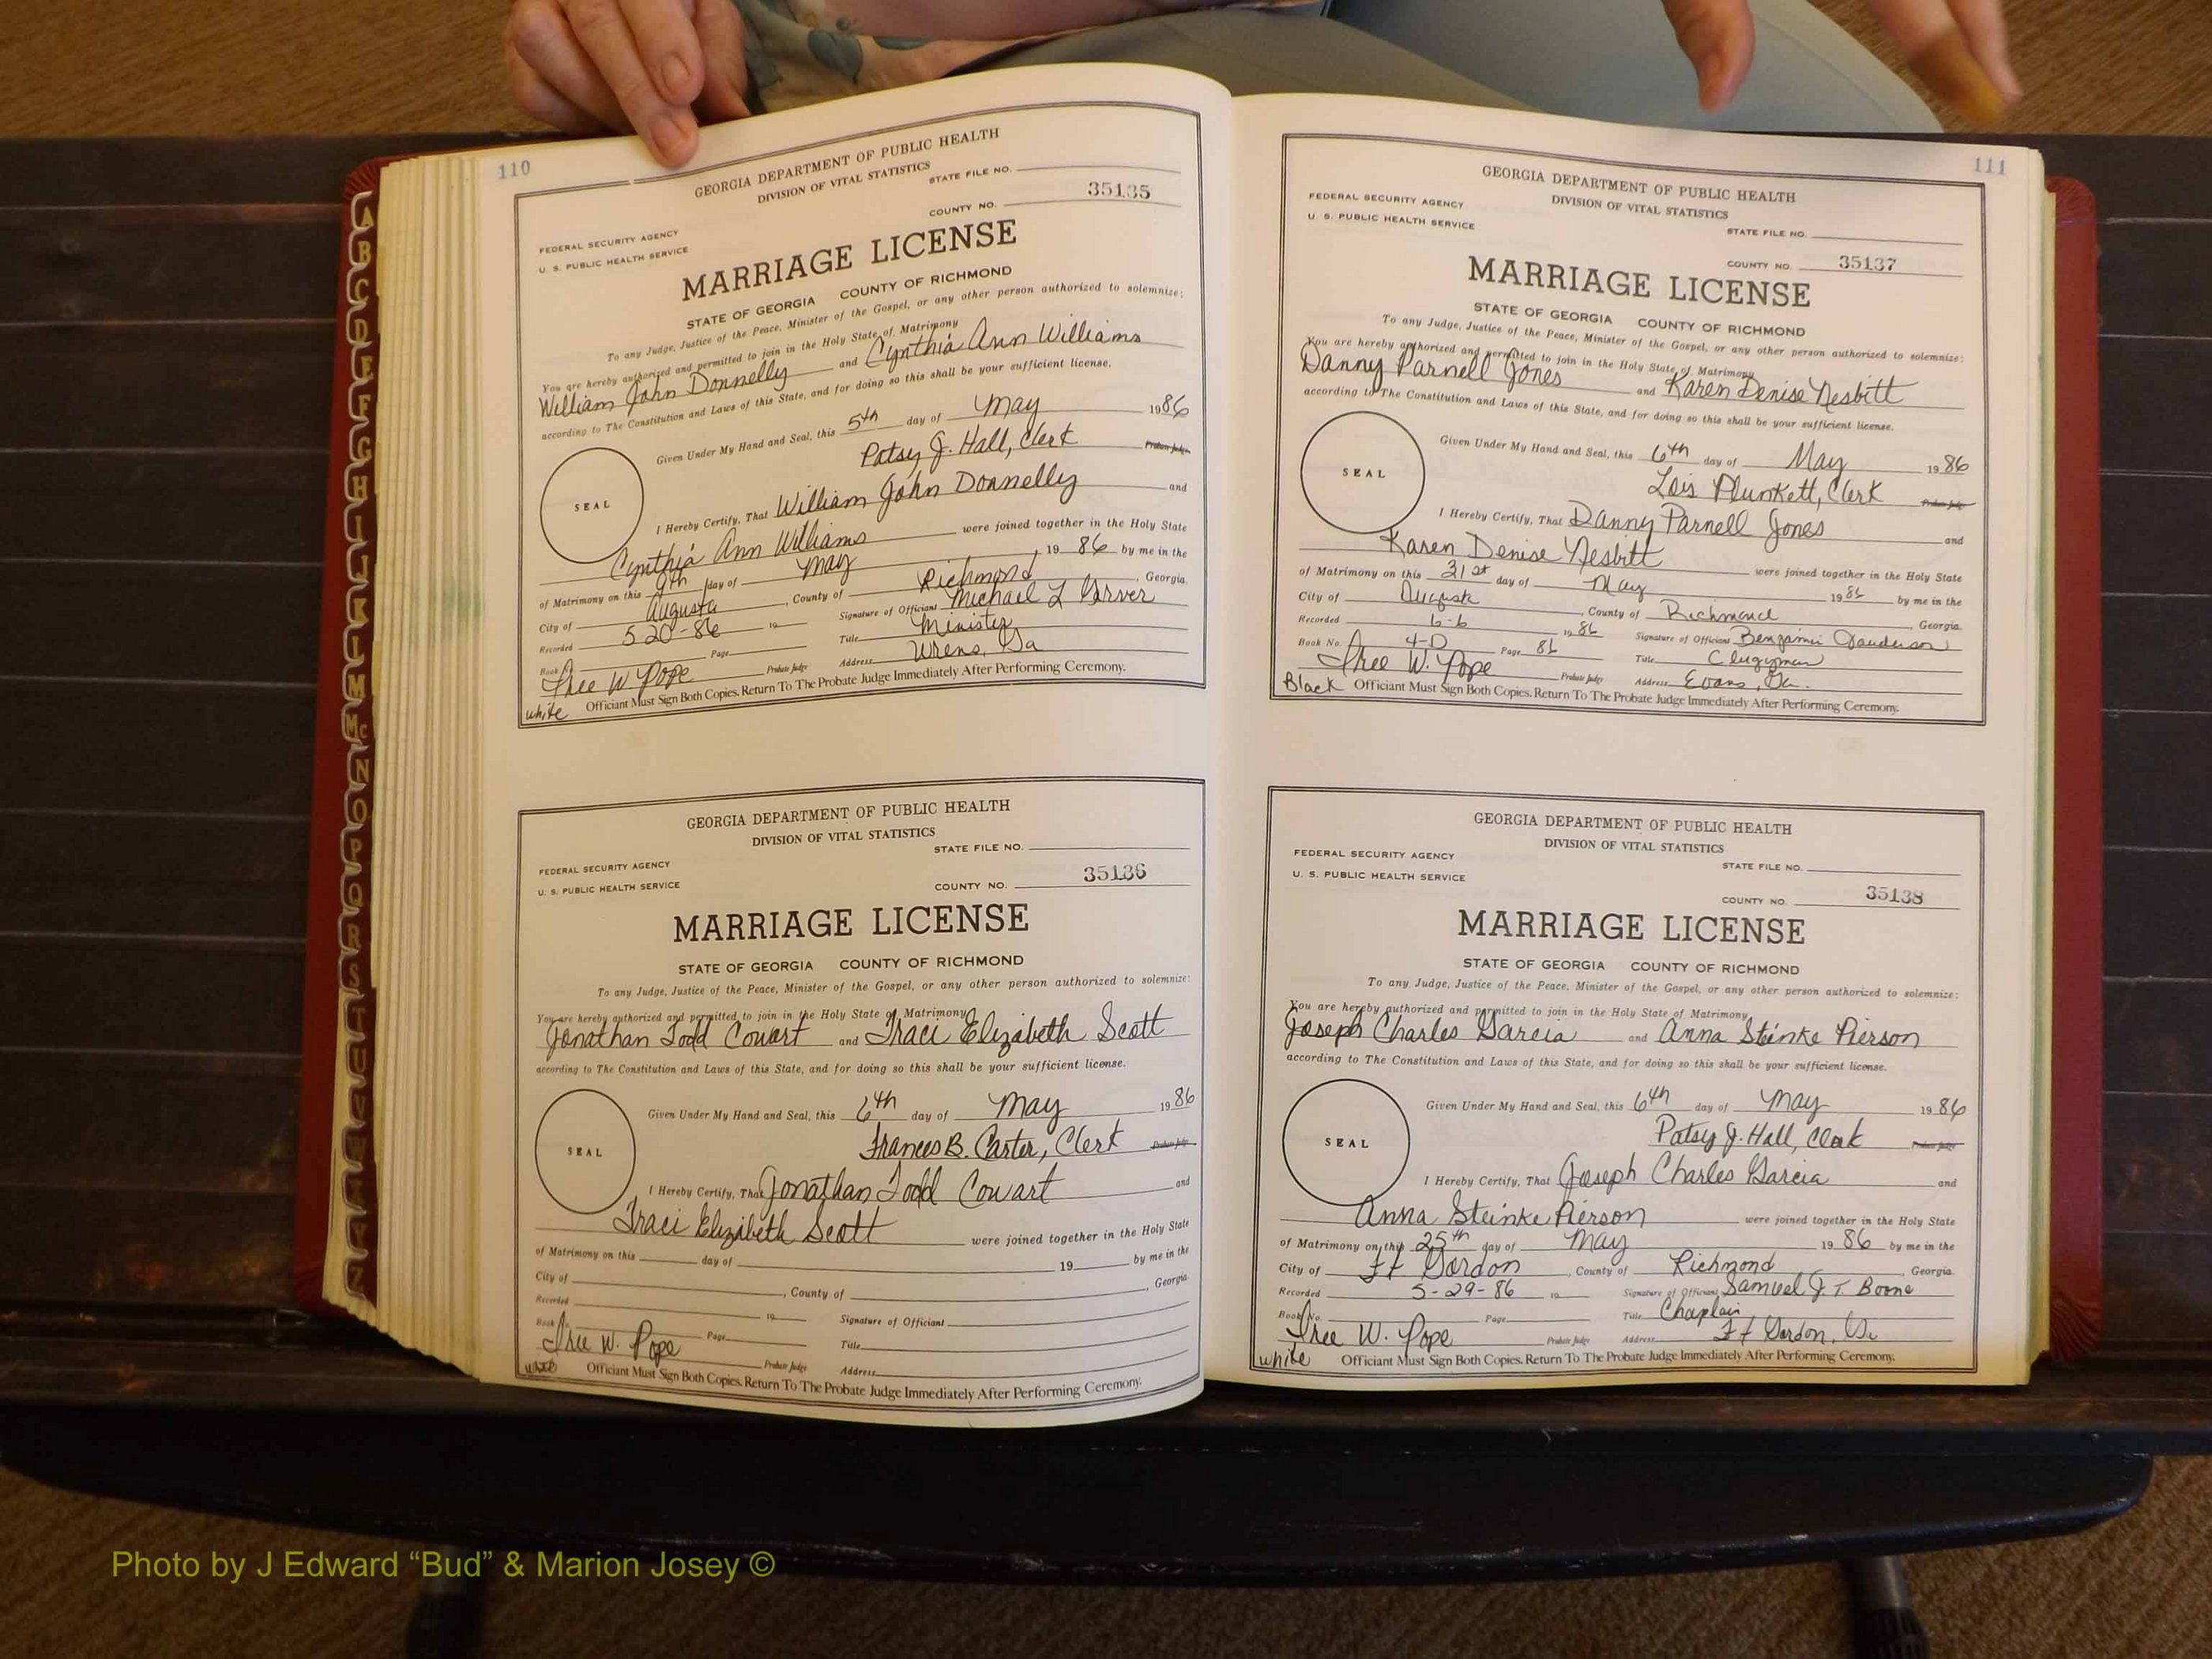 110
GEORGIA DEPARTMENT OF PUBLIC HEALTH
DIVISION OF VITAL STATISTICS
STATE FILE NO.
35135
COUNTY NO.
FEDERAL SECURITY AGENCY
U. S. PUBLIC HEALTH SERVICE
MARRIAGE LICENSE
STATE OF GEORGIA COUNTY OF RICHMOND
To any Judge, Justice of the Peace, Minister of the Gospel, or any other person authorized to solemnize:
You are hereby authorized and permitted to join in the Holy State of Matrimony
William John Donnelly and Cynthia Ann Williams
according to The Constitution and Laws of this State, and for doing so this shall be your sufficient license.
Given Under My Hand and Seal, this 5th day of May 1986
Patsy J. Hall, Clerk Probate Judge
SEAL
I Hereby Certify, That William John Donnelly and
Cynthia Ann Williams were joined together in the Holy State
of Matrimony on this 9th day of May 19 86 by me in the
City of Augusta, County of Richmond, Georgia.
Recorded 5-20-86 19 Signature of Officiant Michael L
Book No. Page Title Minister
Address Wrens, Ga
W. Pope Probate Judge
white Officiant Must Sign Both Copies. Return To The Probate Judge Immediately After Performing Ceremony.
GEORGIA DEPARTMENT OF PUBLIC HEALTH
DIVISION OF VITAL STATISTICS
STATE FILE NO.
FEDERAL SECURITY AGENCY
U. S. PUBLIC HEALTH SERVICE
COUNTY NO. 35136
MARRIAGE LICENSE
STATE OF GEORGIA COUNTY OF RICHMOND
To any Judge, Justice of the Peace, Minister of the Gospel, or any other person authorized to solemnize:
You are hereby authorized and permitted to join in the Holy State of Matrimony
Jonathan Todd Cowart and Traci Elizabeth Scott
according to The Constitution and Laws of this State, and for doing so this shall be your sufficient license.
Given Under My Hand and Seal, this 6th day of May 1986
Frances B. Carter, Clerk Probate Judge
SEAL
I Hereby Certify, That Jonathan Todd Cowart and
Traci Elizabeth Scott were joined together in the Holy State
of Matrimony on this day of 19 by me in the
City of , County of , Georgia
Recorded 19 Signature of Officiant
Book No. Page Title
W. Pope Probate Judge Address
white Officiant Must Sign Both Copies. Return To The Probate Judge Immediately After Performing Ceremony.
111
GEORGIA DEPARTMENT OF PUBLIC HEALTH
DIVISION OF VITAL STATISTICS
FEDERAL SECURITY AGENCY
U. S. PUBLIC HEALTH SERVICE
STATE FILE NO.
COUNTY NO. 35137
MARRIAGE LICENSE
STATE OF GEORGIA COUNTY OF RICHMOND
To any Judge, Justice of the Peace, Minister of the Gospel, or any other person authorized to solemnize:
You are hereby authorized and permitted to join in the Holy State of Matrimony
Danny Parnell Jones and Karen Denise Nesbitt
according to The Constitution and Laws of this State, and for doing so this shall be your sufficient license.
Given Under My Hand and Seal, this 6th day of May 1986
Lois Plunkett, Clerk Probate Judge
SEAL
I Hereby Certify, That Danny Parnell Jones and
Karen Denise Nesbitt were joined together in the Holy State
of Matrimony on this 31st day of May 1986 by me in the
City of Augusta, County of Richmond, Georgia.
Recorded 6-6 1986 Signature of Officiant Benjamin
Book No. 4-D Page 86 Title Clergyman
W. Pope Probate Judge Address Evans, Ga.
Black Officiant Must Sign Both Copies. Return To The Probate Judge Immediately After Performing Ceremony.
GEORGIA DEPARTMENT OF PUBLIC HEALTH
DIVISION OF VITAL STATISTICS
FEDERAL SECURITY AGENCY
U. S. PUBLIC HEALTH SERVICE
STATE FILE NO.
COUNTY NO. 35138
MARRIAGE LICENSE
STATE OF GEORGIA COUNTY OF RICHMOND
To any Judge, Justice of the Peace, Minister of the Gospel, or any other person authorized to solemnize:
You are hereby authorized and permitted to join in the Holy State of Matrimony
Joseph Charles Garcia and Anna Steinke Pierson
according to The Constitution and Laws of this State, and for doing so this shall be your sufficient license.
Given Under My Hand and Seal, this 6th day of May 1986
Patsy J. Hall, Clerk Probate Judge
SEAL
I Hereby Certify, That Joseph Charles Garcia and
Anna Steinke Pierson were joined together in the Holy State
of Matrimony on this 25th day of May 19 86 by me in the
City of Ft Gordon, County of Richmond, Georgia.
Recorded 5-29-86 19 Signature of Officiant Samuel J. T. Boone
Book No. Page Title Chaplain
W. Pope Probate Judge Address Ft Gordon, Ga
white Officiant Must Sign Both Copies. Return To The Probate Judge Immediately After Performing Ceremony.
A
B
C
D
E
F
G
H
I
J
K
L
M
Mc
N
O
P
Q
R
S
T
U
V
W
X
Y
Z
Photo by J Edward “Bud” & Marion Josey ©